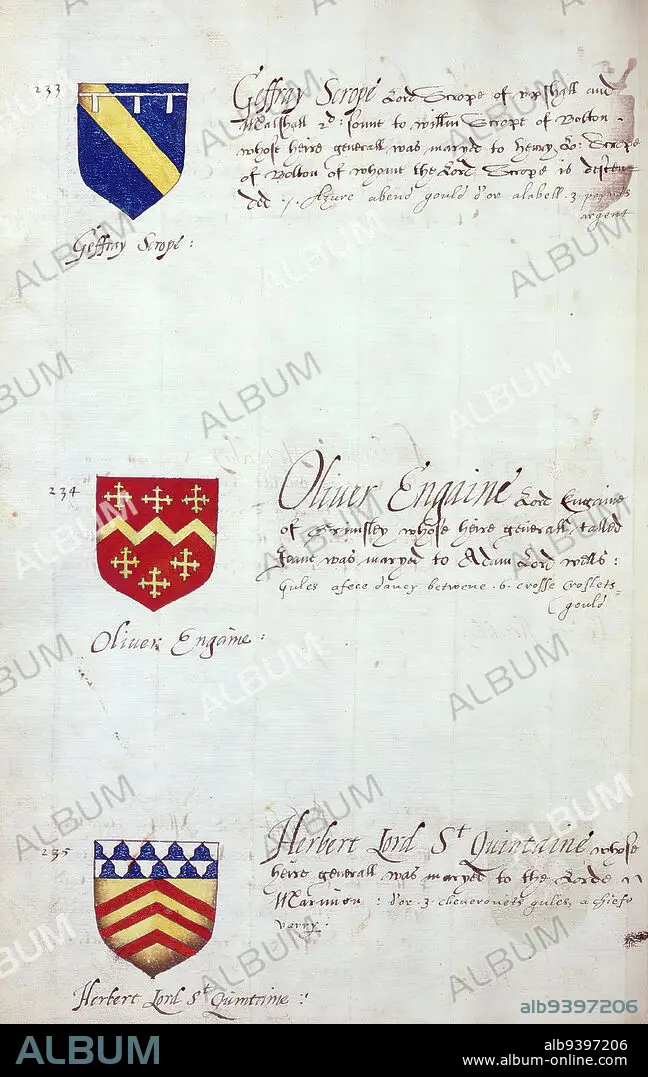 233
Geffray Scrope Lord Scrope of
Malshall 2d: sonne to willm Scrope of Bolton.
whose heire generall was maryed to Henry Lo: Scrope
of Bolton of whome the Lord Scrope is discen
ded /. Azure a bend gould d'or a labell. 3 poynts
argent
Geffray Scrope:
234
Oliver Engaine Lord Engaine
of whose heire generall, called
Jeane was maryed to Adam Lord wells:
Gules a fece dancy betwene .6. crosse croslets
gould
Oliver Engaine:
235
Herbert Lord St Quintaine whose
heire generall was maryed to the Lorde
Marmion: d'or .3. cheveronets gules, a chiefe
varry.
Herbert Lord St Quintaine:
ALBUM
alb9397206
ALBUM
alb9397206
www.album-online.com